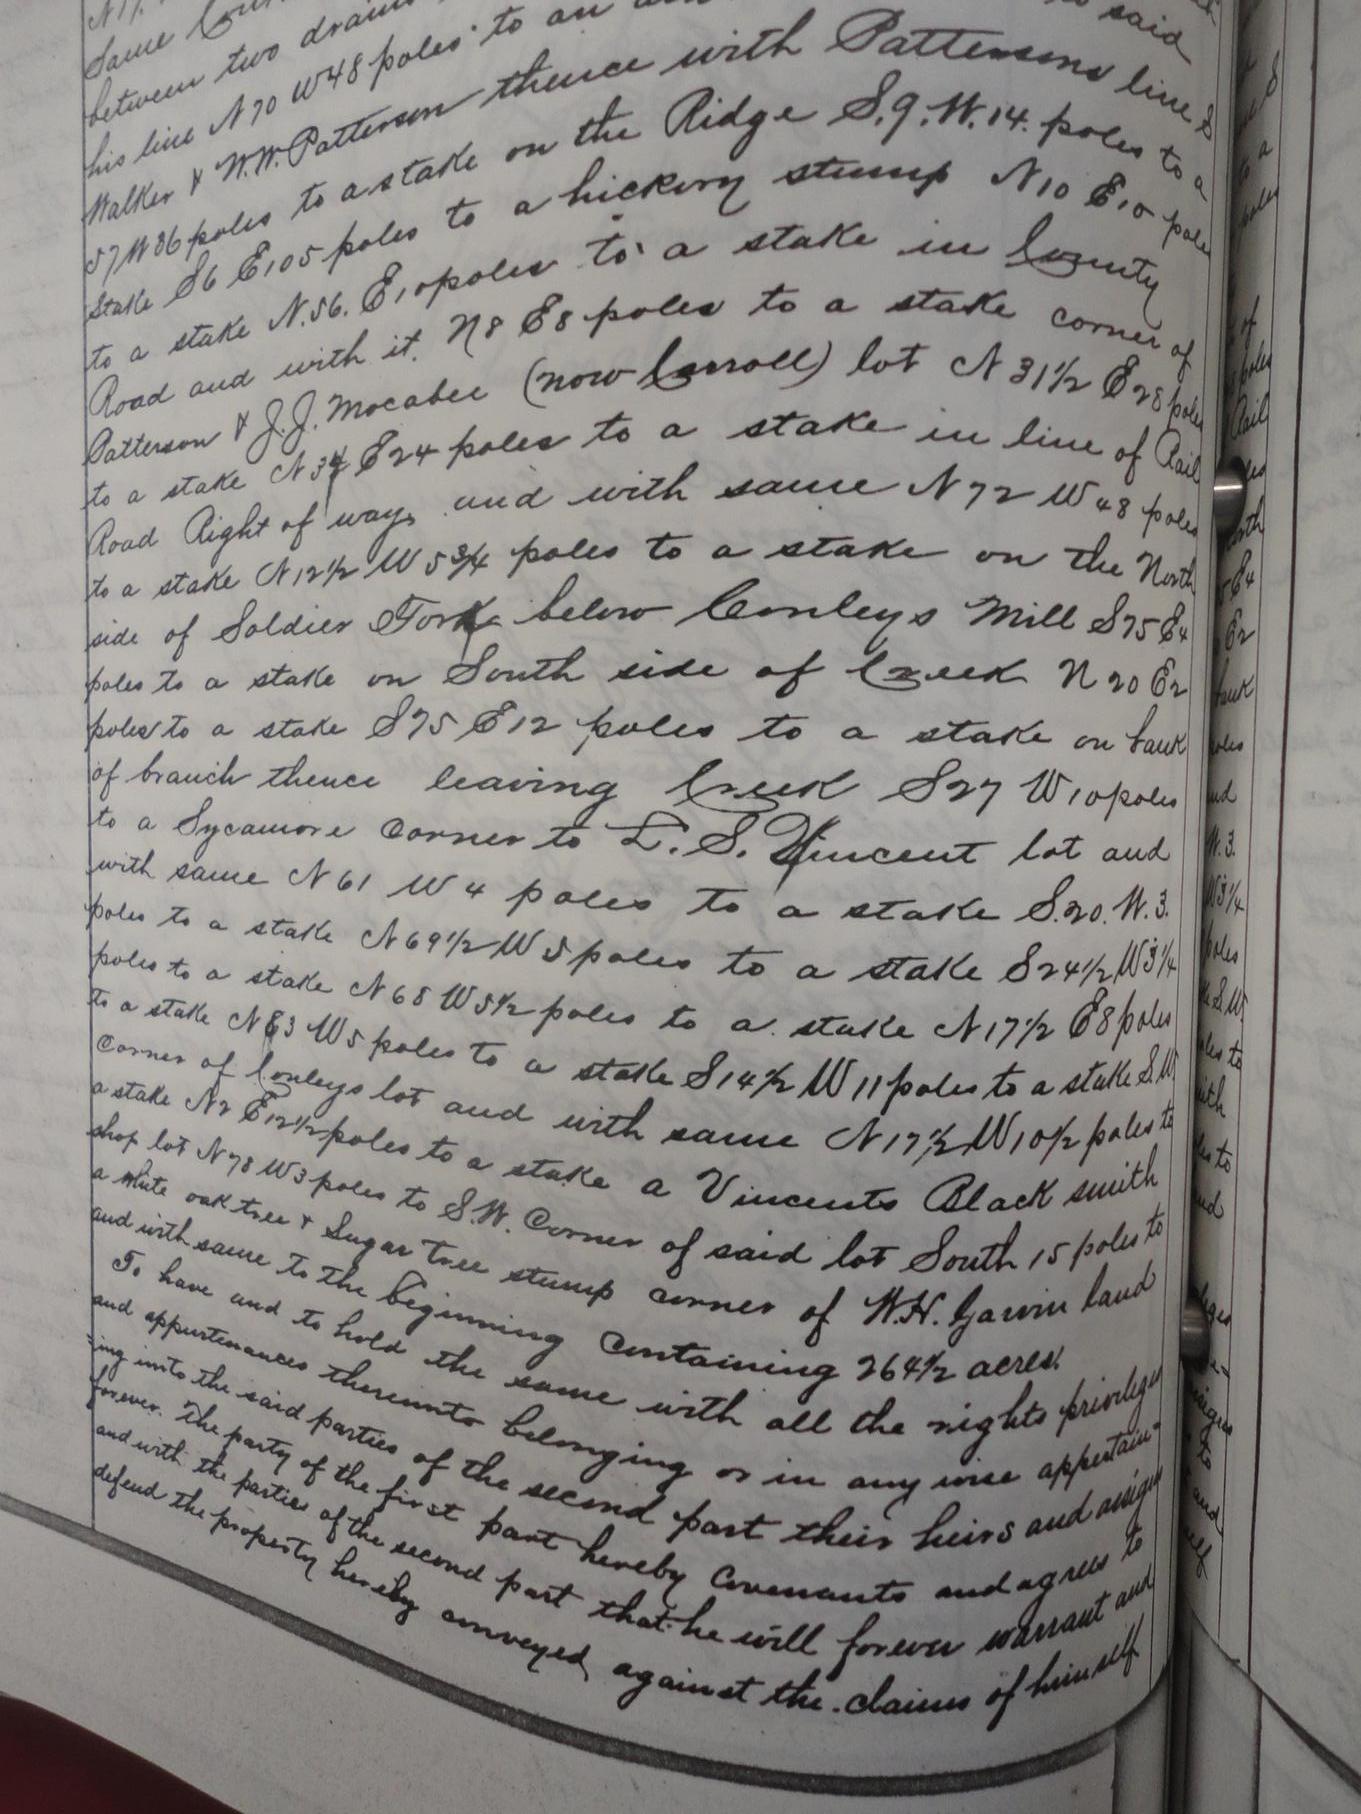 Same
between two drains
his line N 70 W 48 poles to an said
Walker & W.W. Patterson thence with Pattersons line S
57 W 36 poles to a stake on the Ridge S. 9. W. 14. poles to a
Stake S 6 E 105 poles to a hickory stump N 10 E 10 poles
to a stake N. 56. E 10 poles to a stake in County
Road and with it. N 8 E 8 poles to a stake corner of
Patterson & J.J. Mocabee (now Carroll) lot N 31 1/2 E 28 poles
to a stake E 24 poles to a stake in line of Rail
Road Right of way, and with same N 72 W 48 poles
to a stake N 12 1/2 W 5 3/4 poles to a stake on the North
side of Soldier Fork below Conleys Mill S 75 E 4
poles to a stake on South side of Creek N 20 E 2
poles to a stake S 75 E 12 poles to a stake on bank
of branch thence leaving Creek S 27 W 10 poles
to a Sycamore corner to L. S. Vincent lot and
with same N 61 W 4 poles to a stake S. 20. W. 3.
poles to a stake N 69 1/2 W 5 poles to a stake S 24 1/2 W 3 1/4
poles to a stake N 68 W 5 1/2 poles to a stake N 17 1/2 E 8 poles
to a stake N 83 W 5 poles to a stake S 14 1/2 W 11 poles to a stake S.W.
corner of Conleys lot and with same N 17 1/2 W 10 1/2 poles to
a stake N 2 E 12 1/2 poles to a stake a Vincents Black smith
shop lot N 78 W 3 poles to S.W. Corner of said lot South 15 poles to
a white oak tree & Sugar tree stump corner of W.H. Garvin land
and with same to the beginning containing 264 1/2 acres.
To have and to hold the same with all the rights privileges
and appurtenances thereunto belonging or in any wise appertain-
=ing unto the said parties of the second part their heirs and assigns
forever. The party of the first part hereby covenants and agrees to
and with the parties of the second part that he will forever warrant and
defend the property hereby conveyed against the claims of himself